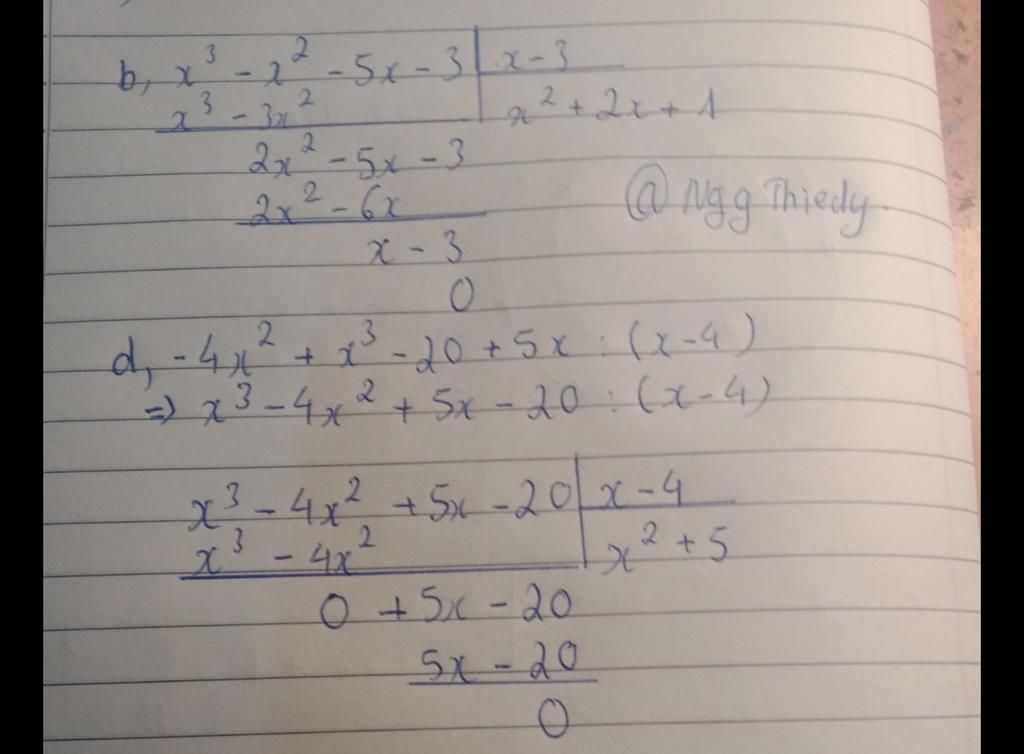 b, x³ - x² - 5x - 3 | x - 3
x³ - 3x² | x² + 2x + 1
2x² - 5x - 3
2x² - 6x
@ Ngg Thiedy.
x - 3
0
d, -4x² + x³ - 20 + 5x : (x-4)
=> x³ - 4x² + 5x - 20 : (x-4)
x³ - 4x² + 5x - 20 | x - 4
x³ - 4x² | x² + 5
0 + 5x - 20
5x - 20
0